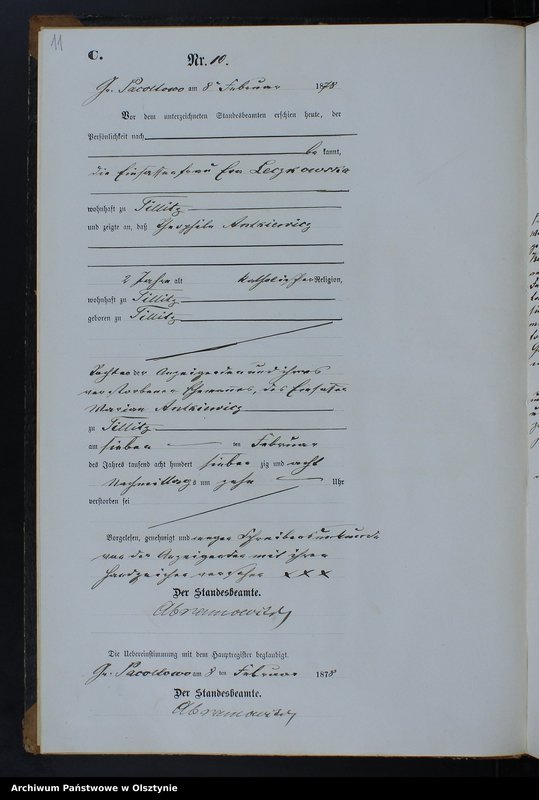 11
C.
Nr. 10.
Gr. Pacoltowo am 8ten Februar 1878
Vor dem unterzeichneten Standesbeamten erschien heute, der
Persönlichkeit nach
be kannt,
die Einsassenfrau Eva Leczkowska
wohnhaft zu Tillitz
und zeigte an, daß Theophila Antkiewicz
2 Jahre alt katholischer Religion,
wohnhaft zu Tillitz
geboren zu Tillitz
Tochter der Anzeigenden und ihres
verstorbenen Ehemannes, des Einsassen
Marian Antkiewicz
zu Tillitz
am sieben ten Februar
des Jahres tausend acht hundert sieben zig und acht
Nachmittags um zehn Uhr
verstorben sei
Vorgelesen, genehmigt und wegen Schreibensunkunde
von der Anzeigenden mit ihren
Handzeichen versehen x x x
Der Standesbeamte.
Die Uebereinstimmung mit dem Hauptregister beglaubigt.
Gr. Pacoltowo am 8 ten Februar 1878
Der Standesbeamte.
Archiwum Państwowe w Olsztynie